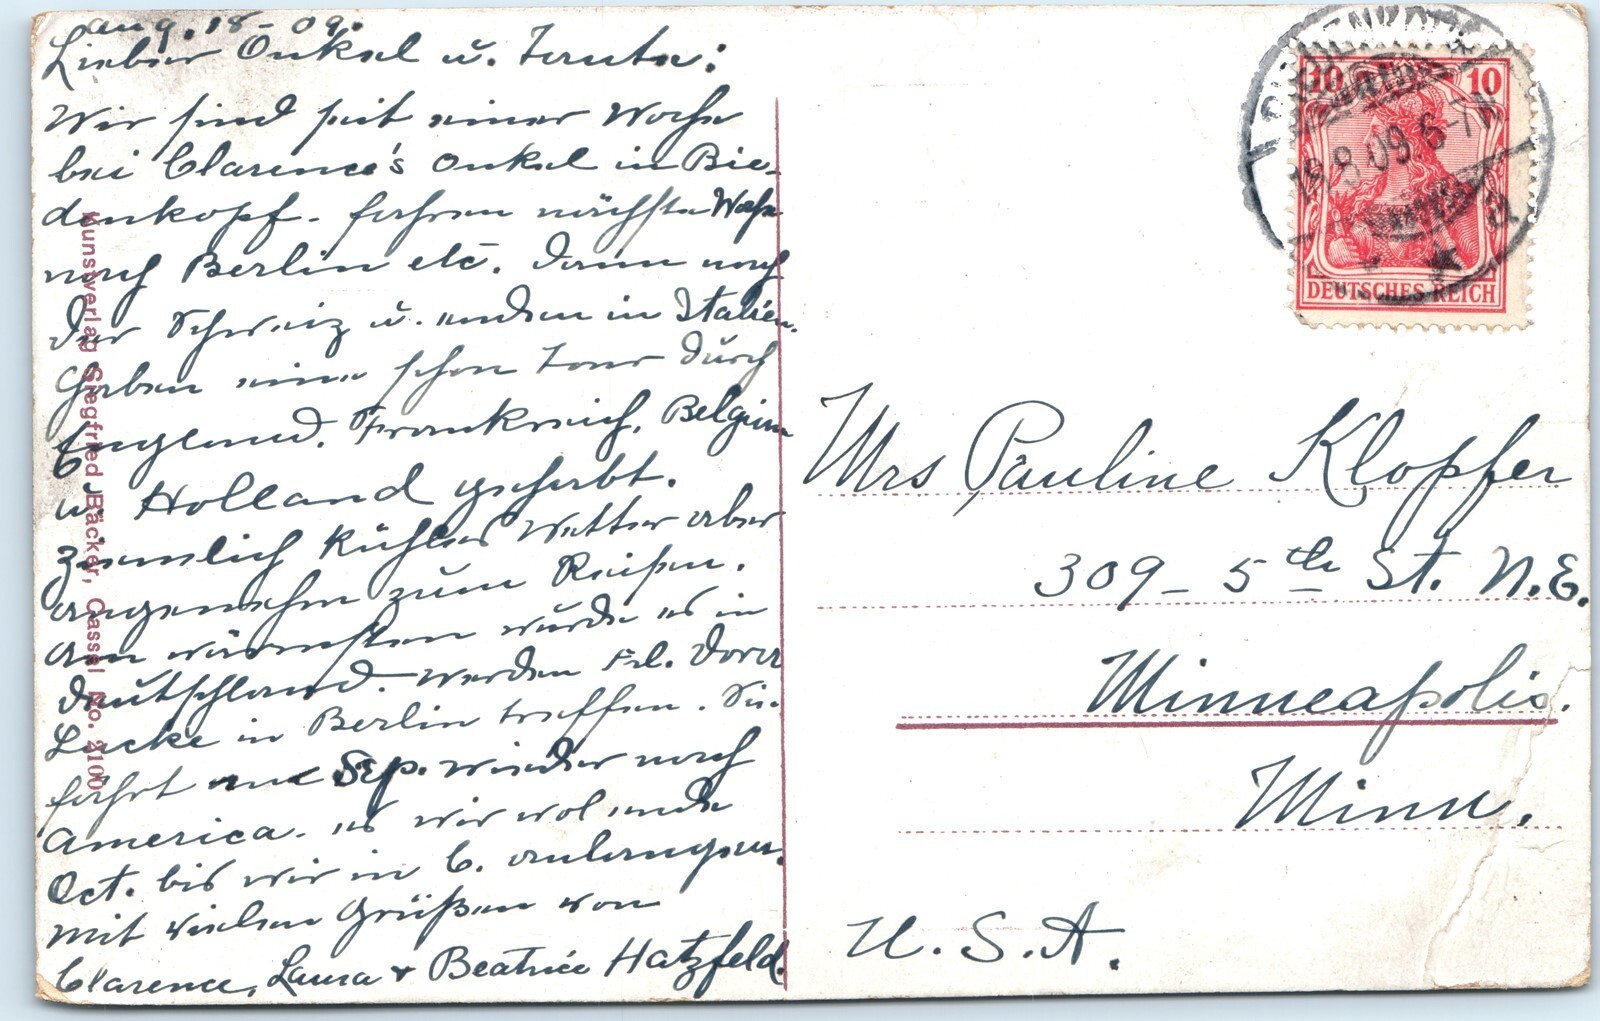 Aug. 18-09.
Lieber Onkel u. Tante:
Wir sind seit einer Woche
bei Clarence's Onkel in Bie-
denkopf. fahren nächste Woche
nach Berlin etc. dann nach
der Schweiz u. enden in Italien.
Haben eine schon Tour durch
England, Frankreich, Belgien
u. Holland gehabt.
ziemlich kühles Wetter aber
angenehm zum Reisen.
Am wärmsten wurde es in
Deutschland. Werden Frl. Dora
Lucke in Berlin treffen. Sie
fährt Sep. wieder nach
America. es wir wol ende
Oct. bis wir in C. anlangen.
Mit vielen Grüßen von
Clarence, Laura & Beatrice Hatzfeld.
Kunstverlag Siegfried Bäcker, Cassel No. 2100
10 10
19.8.09 6-7N
a
DEUTSCHES REICH
Mrs Pauline Klopfer
309 - 5th St. N.E.
Minneapolis.
Minn.
U.S.A.